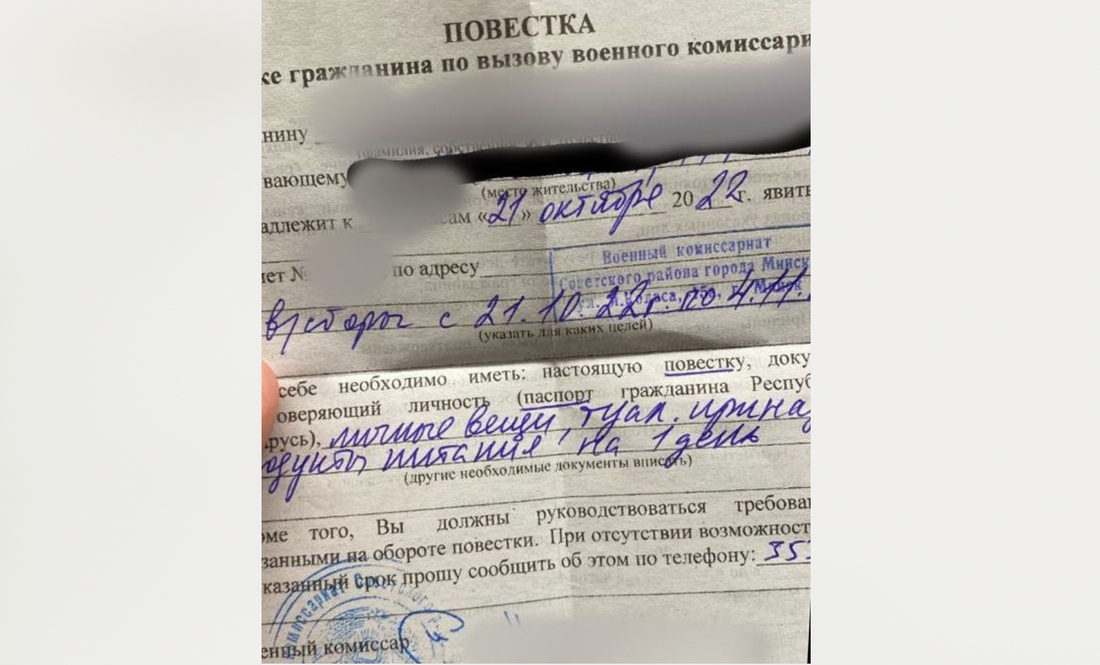 ПОВЕСТКА
ке гражданина по вызову военного комиссари
нину
(фамилия, собственное
вающему
(место жительства)
адлежит к сам «21» октября 2022 г. явить
ет № по адресу
Военный комиссариат
Советского района города Минск
в/сборы с 21.10.22г. по 4.11.
(указать для каких целей)
себе необходимо иметь: настоящую повестку, доку
оверяющий личность (паспорт гражданина Респуб
русь), личные вещи, туал. прина
одукты питания на 1 день
(другие необходимые документы вписать)
оме того, Вы должны руководствоваться требова
занными на обороте повестки. При отсутствии возможност
казанный срок прошу сообщить об этом по телефону: 353
комиссариат Советского
енный комиссар